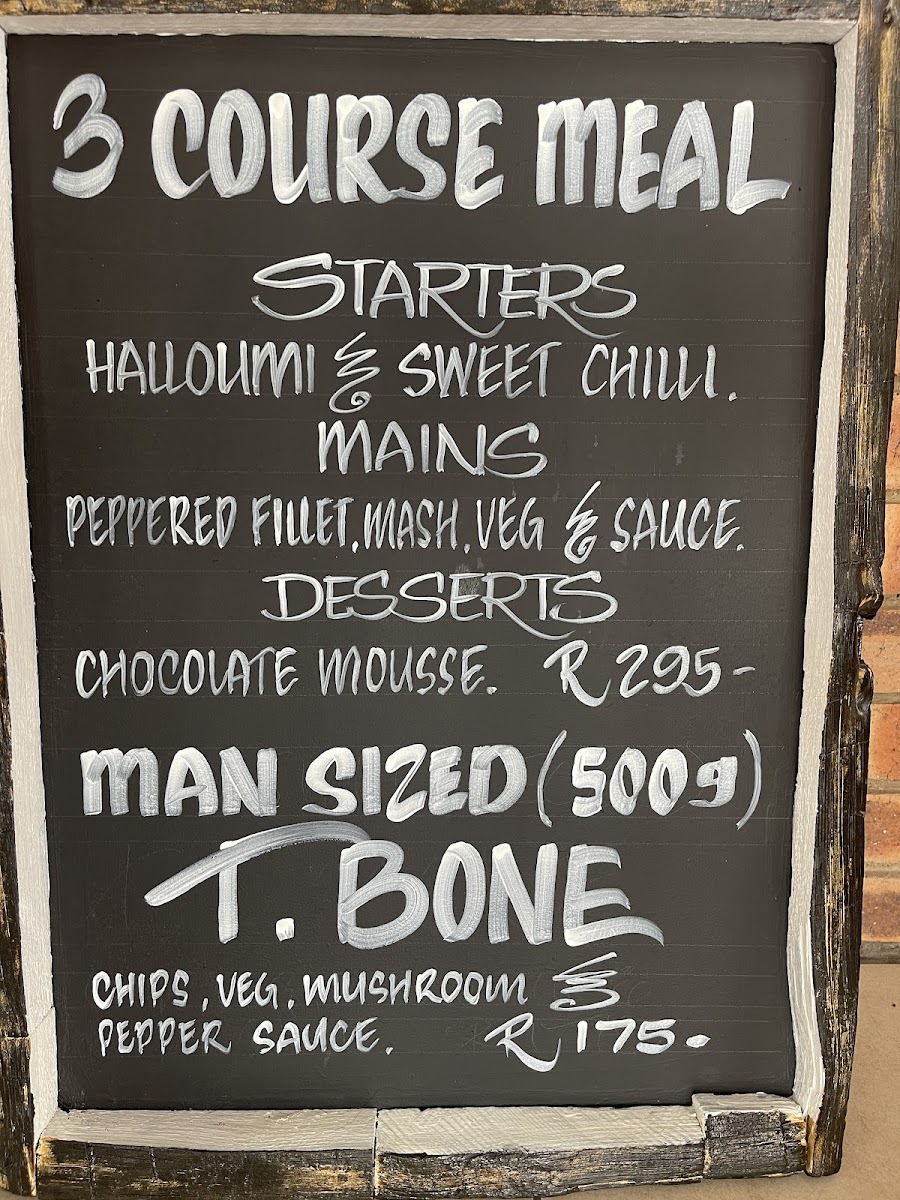 3 COURSE MEAL
STARTERS
HALLOUMI & SWEET CHILLI.
MAINS
PEPPERED FILLET, MASH, VEG & SAUCE.
DESSERTS
CHOCOLATE MOUSSE. R295-
MAN SIZED (500g)
T. BONE
CHIPS, VEG, MUSHROOM &
PEPPER SAUCE. R175.